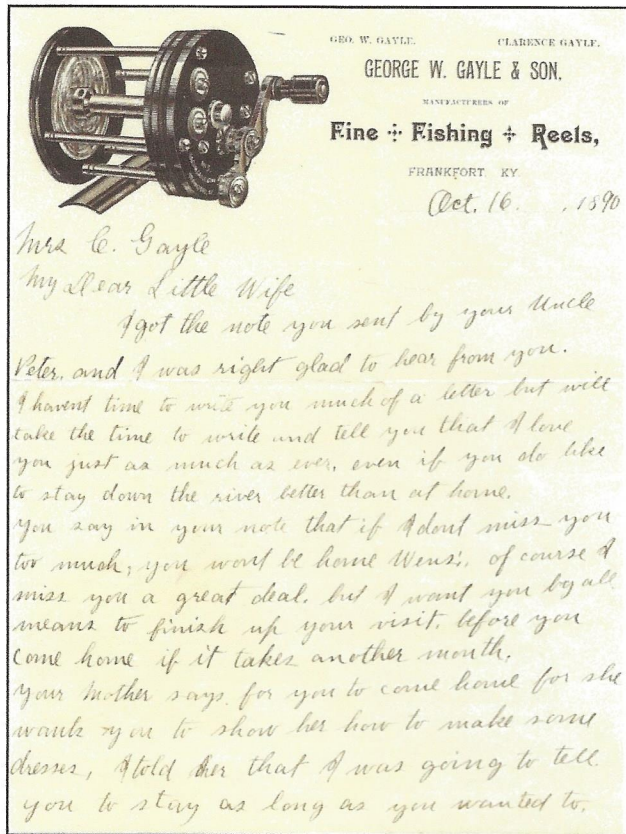 GEO. W. GAYLE. CLARENCE GAYLE.
GEORGE W. GAYLE & SON,
MANUFACTURERS OF
Fine ÷ Fishing ÷ Reels,
FRANKFORT, KY.
Oct. 16. , 1890
Mrs C. Gayle
My Dear Little Wife
I got the note you sent by your Uncle
Peter, and I was right glad to hear from you.
I havent time to write you much of a letter but will
take the time to write and tell you that I love
you just as much as ever, even if you do like
to stay down the river better than at home.
You say in your note that if I dont miss you
too much, you wont be home Wens', of course I
miss you a great deal, but I want you by all
means to finish up your visit, before you
come home if it takes another month.
Your Mother says for you to come home for she
wants you to show her how to make some
dresses, I told her that I was going to tell
you to stay as long as you wanted to.